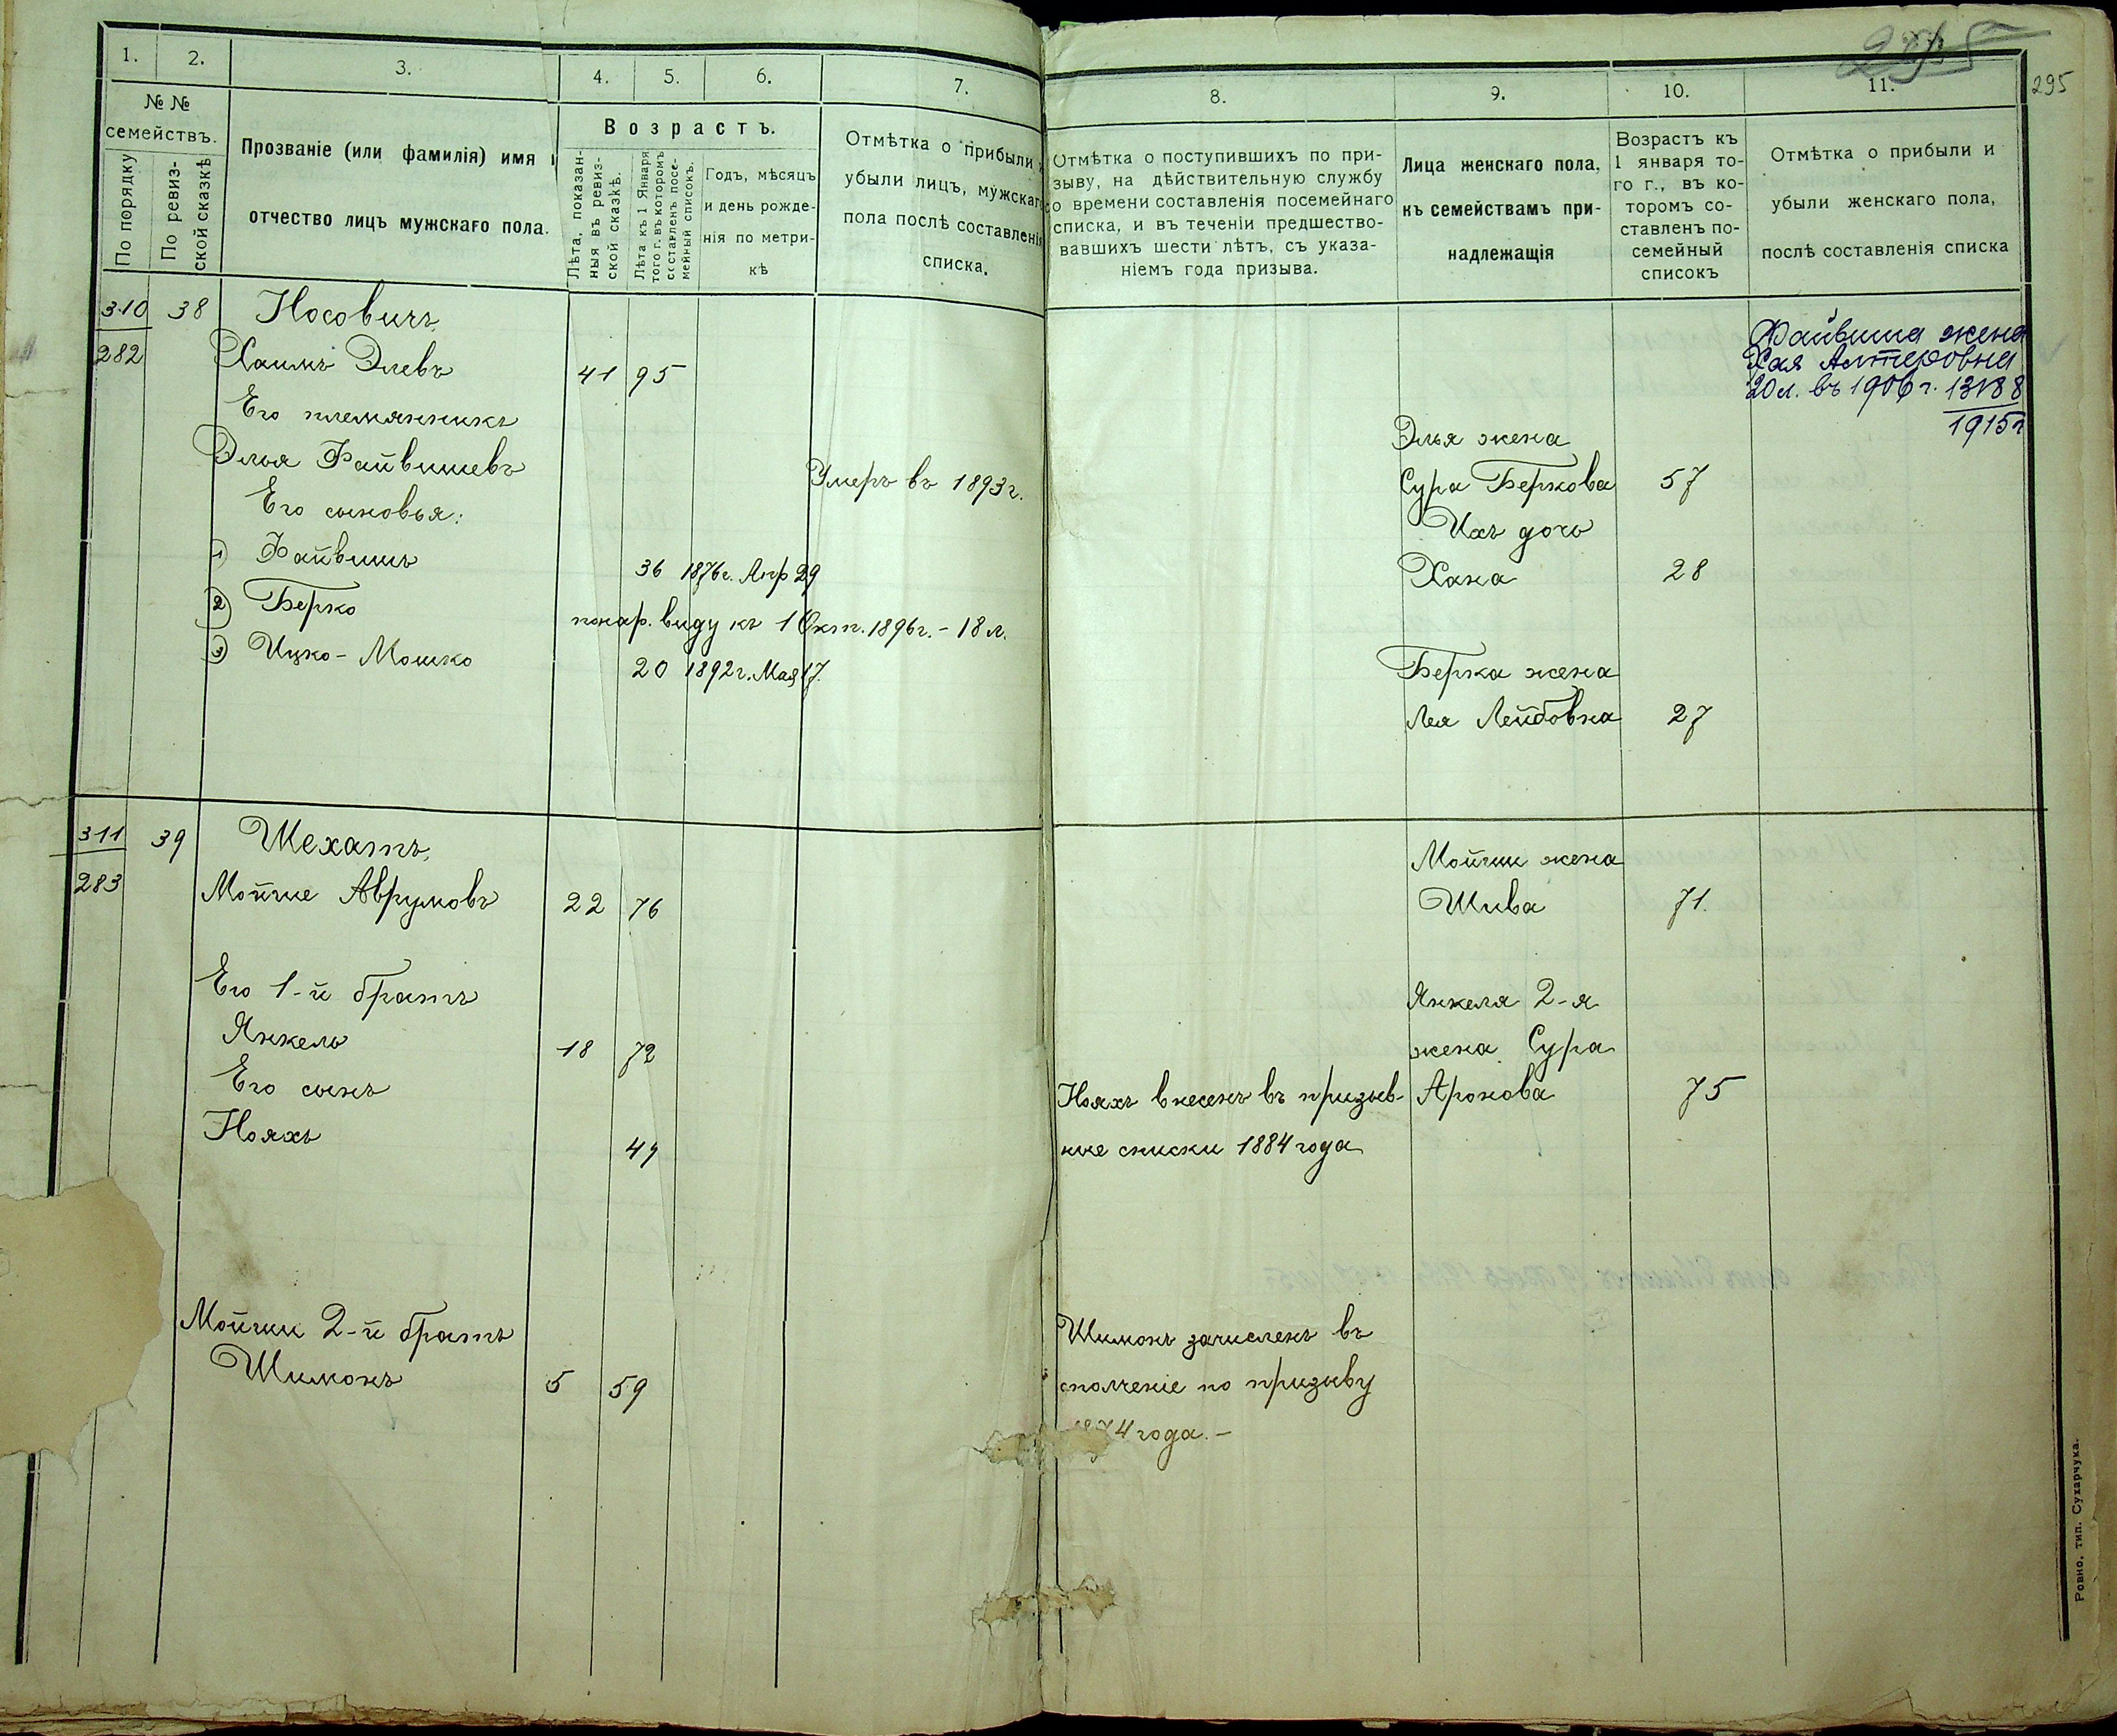 1. 2. 3. 4. 5. 6. 7.
№ №
семействъ.
По порядку
По ревиз-
ской сказкѣ
Прозваніе (или фамилія) имя и
отчество лицъ мужскаго пола.
Возрастъ.
Лѣта, показан-
ныя въ ревиз-
ской сказкѣ.
Лѣта къ 1 Января
того г. въ которомъ
составленъ посе-
мейный списокъ.
Годъ, мѣсяцъ
и день рожде-
нія по метри-
кѣ
Отмѣтка о прибыли и
убыли лицъ, мужскаго
пола послѣ составленія
списка.
310 38 Носовичъ
282 Хаимъ Элевъ 41 95
Его племянникъ
Элья Файвишевъ Умеръ въ 1893 г.
Его сыновья:
1) Файвишъ 36 1876 г. Апр 29
2) Берко по нар. виду къ 1 Окт. 1896 г. - 18 л.
3) Ицко - Мошко 20 1892 г. Мая 17.
311 39 Шехатъ,
283 Мойше Аврумовъ 22 76
Его 1-й братъ
Янкель 18 72
Его сынъ
Нояхъ 49
Мойши 2-й братъ
Шимонъ 5 59
295
8. 9. 10. 11.
295
Отмѣтка о поступившихъ по при-
зыву, на дѣйствительную службу
со времени составленія посемейнаго
списка, и въ теченіи предшество-
вавшихъ шести лѣтъ, съ указа-
ніемъ года призыва.
Лица женскаго пола,
къ семействамъ при-
надлежащія
Возрастъ къ
1 января то-
го г., въ ко-
торомъ со-
ставленъ по-
семейный
списокъ
Отмѣтка о прибыли и
убыли женскаго пола,
послѣ составленія списка
Файвиша жена
Хая Алтеровна
20 л. въ 1906 г.
1915 г
Элья жена
Сура Беркова 57
Ихъ дочь
Хана 28
Берка жена
Лея Лейбовна 27
Мойши жена
Шива 71.
Янкеля 2-я
жена Сура
Нояхъ внесенъ въ призыв- Аронова 75
ные списки 1884 года
Шимонъ зачисленъ въ
ополченіе по призыву
1874 года. -
Ровно, тип. Сухарчука.